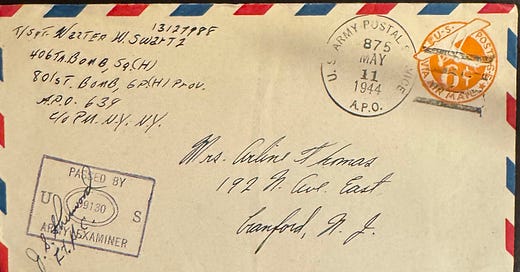 T/Sgt. Walter W. Swartz 13127988
406Th. Bomb. Sq.(H)
801st. Bomb. GP(H) Prov.
A.P.O. 639
c/o PM. N.Y. N.Y.
U.S. ARMY POSTAL SERVICE
875
MAY
11
1944
A.P.O.
U.S. POSTAGE
VIA AIR MAIL
Mrs. Arline Thomas
192 N. Ave. East
Cranford, N. J.
PASSED BY
U S
ARMY EXAMINER